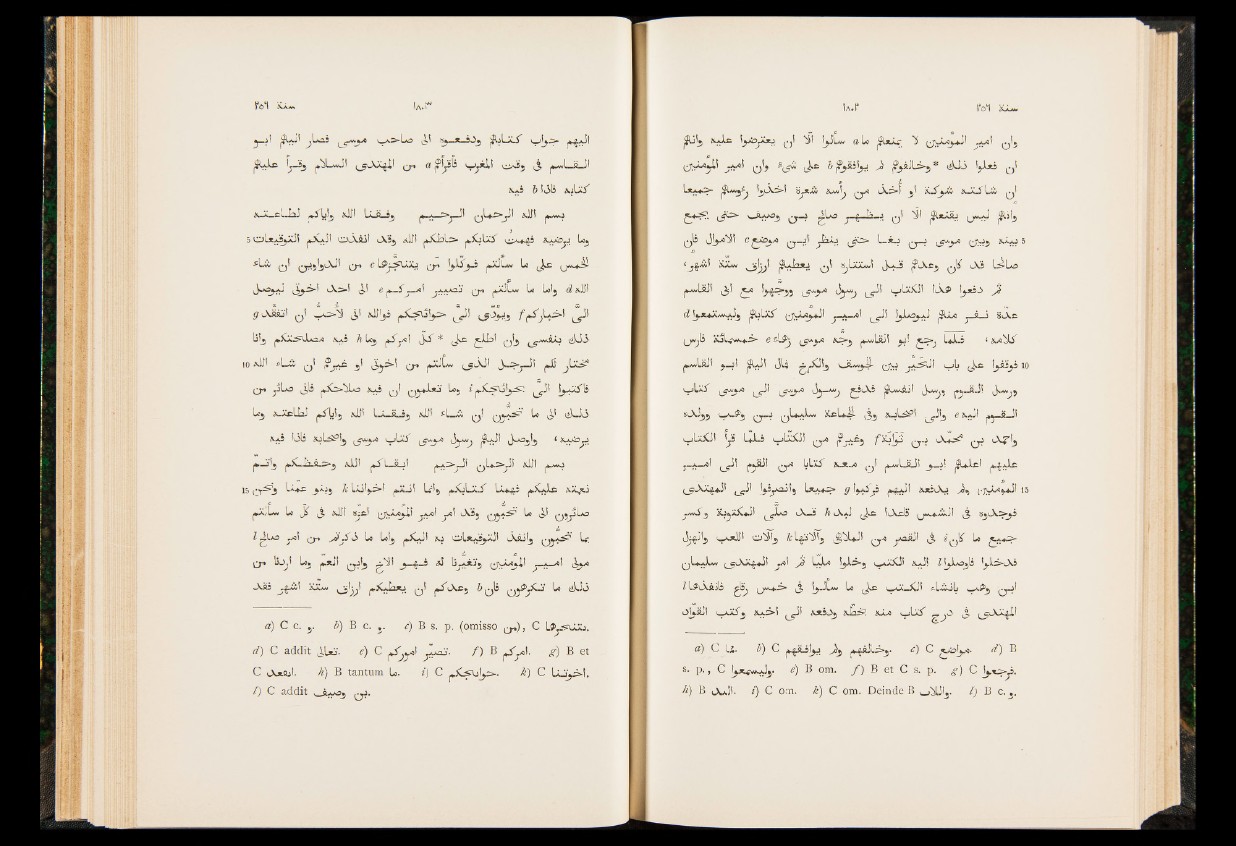 سنة ٢٥٦ ١٨٠٢
وان امير المؤمنين لا يمنعهم ما a سألوا الّا ان يعترضوا عليه وانهم
ان فعلوا ذلك *وخالفوهم لم يوافقوهم b على شىء وان امير المؤمنين
ان شاكته شوكة او أخذ من رأسه شعرة اخذوا رؤسهم جميعا
وانهم ليس يقنعهم الّا ان يظهر صالح بن وصيف حتى يجمع
5 بينه وبين موسى بن بغا حتى ينظر اين موضع c الاموال فان
صالحا قد كان وعدهم قبل استتاره ان يعطيهم ارزاق ستّة اشهر،
ثم دفعوا هذا الكتاب الى رسول موسى ووجّهوا مع ابى القاسم
عدّة نفر منهم ليوصلوا الى امير المؤمنين كتابهم وليستمعوا d
كلامه، فلمّا رجع ابو القاسم وجّه موسى زهاء e خمسمائة فارس
10 فوقفوا على باب الحَيْر بين الجوسق والكرخ فمال اليهم ابو القاسم
ورسل القوم ورسل انفسهم فدفع رسول موسى الى موسى كتاب
القوم اليه e والى اصحابه وفى الجماعة سليمان بن وهب وولده
واحمد بن محمّد بن ثوابة f وغيرهم من الكتّاب فلمّا قرأ الكتاب
عليهم اعلمهم ابو القاسم ان معه كتابا من القوم الى امير
15 المؤمنين ولم يدفعه اليهم فركبوا g جميعا وانصرفوا الى المهتدى
فوجدوه فى الشمس قاعدا على لبد h قد صلّى المكتوبة وكسر
جميع ما كان i فى القصر من الملاهى وآلاتها k وآلات اللعب والهزل
فدخلوا فاوصلوا l اليه الكتب وخلوا مليّا ثم امر المهتدى سليمان
ابن وهب بانشاء الكتب على ما سألوا فى خمس رقاع فانفذها l
المهتدى فى درج كتاب منه بخطّه ودفعه الى اخيه وكتب القوّاد
a) C لما. b) C وخالفهم ولم يوافقهم. c) C مواضع. d) B
s. p., C وليسمعوا. e) B om. f) B et C s. p. g) C فرجعوا.
h) B اللبد. i) C om. k) C om. Deinde B واللات. l) B c. و.
سنة ٢٥٦ ١٨٠٣
اليهم جواب كتابهم ودفعوه الى صاحب موسى فصار اليهم ابو
القاسم فى وقت المغرب فأقرأهم a من المهتدى السلام وقرأ عليهم
كتابه فاذا b فيه
بسم الله الرحمان الرحيم وفّقنا الله واياكم لطاعته
5 وما يرضيه فهمتُ كتابكم حاطكم الله وقد انفذت اليكم التوقيعات
الخمس على ما سألتم فوكّلوا من يتنجّزها c من الدواوين ان شاء
الله d واما ما سألتم من تصيير امركم e الى احد اخوتى ليوصل
الىّ اخباركم f ويؤدّى الىّ حوائجكم فوالله انى لأحبّ ان اتفقّد g
ذلك بنفسى وان اطلع على *كلّ امركم وما h فيه مصلحتكم وانا
10 مختار لكم الرجل الذى سألتم من اخوتى او غيرهم ان شاء الله
فاكتبوا الىّ بحوائجكم i وما تعلمون ان فيه صلاحكم فانى صائر من
ذلك الى ما تحبّون ان شاء الله وفّقنا الله واياكم لطاعته وما
يرضيه، واوصل اليهم رسول موسى كتاب موسى واصحابه فاذا فيه
بسم الله الرحمان الرحيم ابقاكم الله وحفظكم واتمّ
15 نعمته عليكم فهمنا كتابكم وانما انتم اخواننا k وبنو عمّنا ونحن
صائرون الى ما تحبّون وقد امر امير المؤمنين اعزّه الله فى كلّ ما سألتم
بما تحبّون وانفذ التوقيعات به اليكم واما ما ذكرتم من امر صالح l
مولى امير المؤمنين وتغيّرنا له فهو الاخ وابن العمّ وما اردنا من
ذلك ما تكرهون فان b وعدكم ان يعطيكم ارزاق ستّة اشهر فقد
a) C c. و. b) B c. و. c) B s. p. (omisso من), C بتنجزها.
d) C addit تعالى. e) C تصيّر اموركم. f) B امركم. g) B et
C اتعقد. h) B tantum ما. i) C حوائجكم. k) C اخوتنا.
l) C addit بن وصيف.